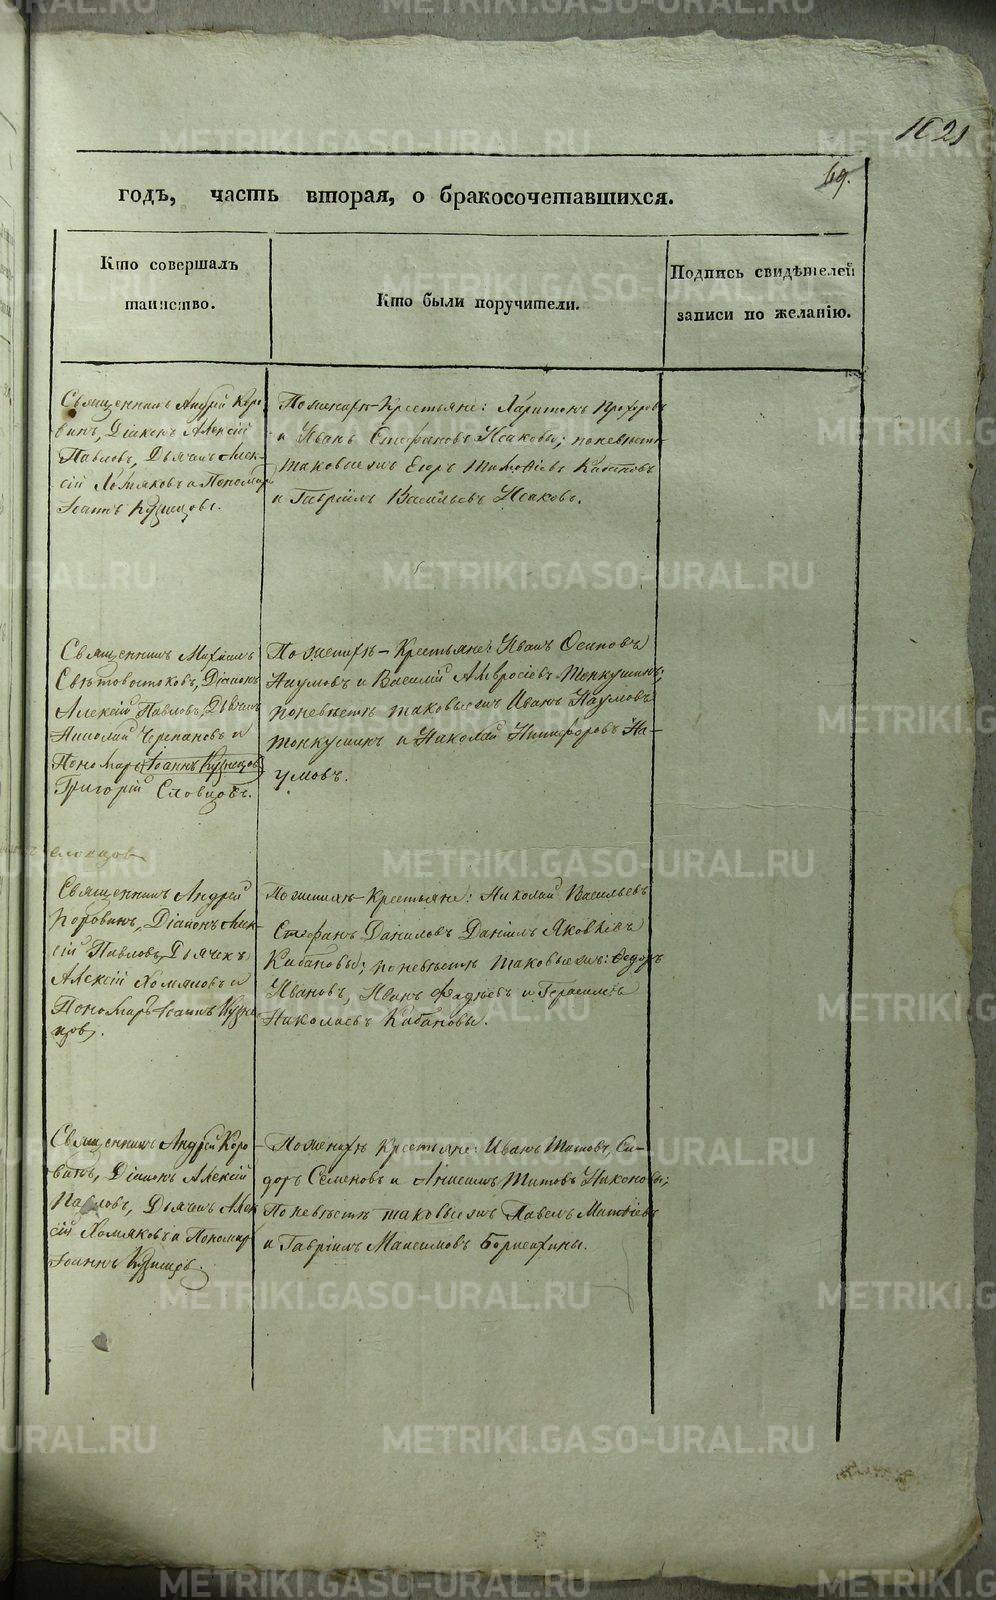 69.
годъ, часть вторая, о бракосочетавшихся.
Кто совершалъ
таинство.
Кто были поручители.
Подпись свидѣтелей
записи по желанію.
Священникъ Андрей Коро-
винъ, Діаконъ Алексій
Павловъ, Дьячекъ Алек-
сій Хомяковъ и Пономарь
Іоаннъ Кузнецовъ.
По женихѣ Крестьяне: Харитонъ Прохоровъ
и Иванъ Стефановъ Исаковы; по невѣстѣ
таковые жъ Егоръ Тимофѣевъ Кабановъ
и Гавріилъ Васильевъ Исаковъ.
Священникъ Михаилъ
Свѣтовостоковъ, Діаконъ
Алексій Павловъ, Дьячекъ
Николай Черепановъ и
Пономарь Іоаннъ Кузнецовъ
Григорій Словцовъ.
По женихѣ Крестьяне Иванъ Осиповъ
Наумовъ и Василій Амвросіевъ Тонкушинъ;
по невѣстѣ таковые жъ Иванъ Наумовъ
Тонкушинъ и Николай Никифоровъ На-
умовъ.
словцов
Священникъ Андрей
Коровинъ, Діаконъ Алек-
сій Павловъ, Дьячекъ
Алексій Хомяковъ и
Пономарь Іоаннъ Кузне-
цовъ.
По женихѣ Крестьяне: Николай Васильевъ
Стефанъ Даниловъ Даніилъ Яковлевъ
Кабановы; по невѣстѣ таковые жъ: Федоръ
Ивановъ, Иванъ Фадѣевъ и Герасимъ
Николаевъ Кабановы.
Священникъ Андрей Коро-
винъ, Діаконъ Алексій
Павловъ, Дьячекъ Алек-
сій Хомяковъ и Пономарь
Іоаннъ Кузнецовъ.
По женихѣ Крестьяне: Иванъ Титовъ, Си-
доръ Семеновъ и Анисимъ Титовъ Никоновы;
По невѣстѣ таковые жъ Павелъ Матвѣевъ
и Гавріилъ Максимовъ Борисихины.
METRIKI.GASO-URAL.RU